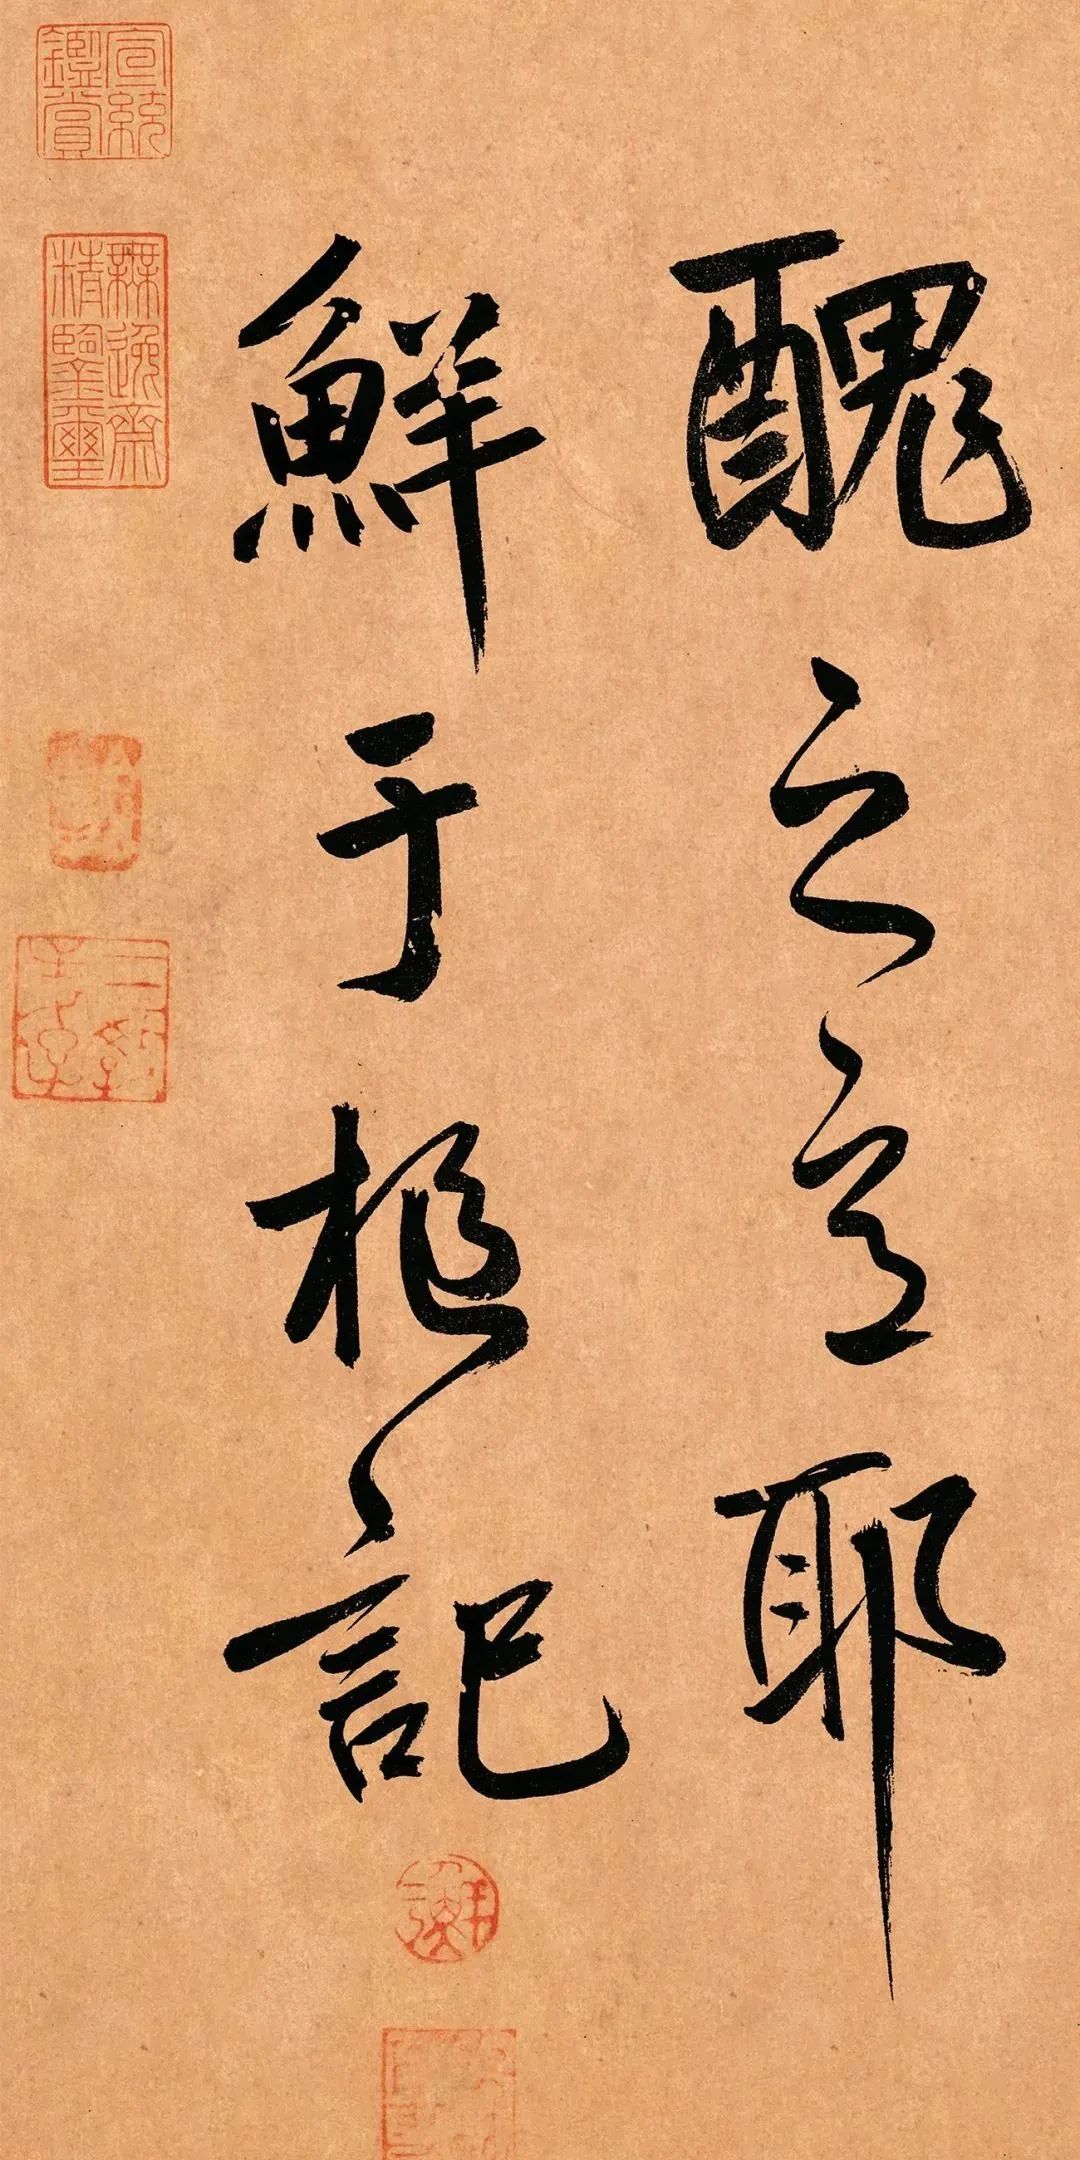 醜之意耶
鮮于樞記
宣統鑑賞
無逸齋精鑒璽